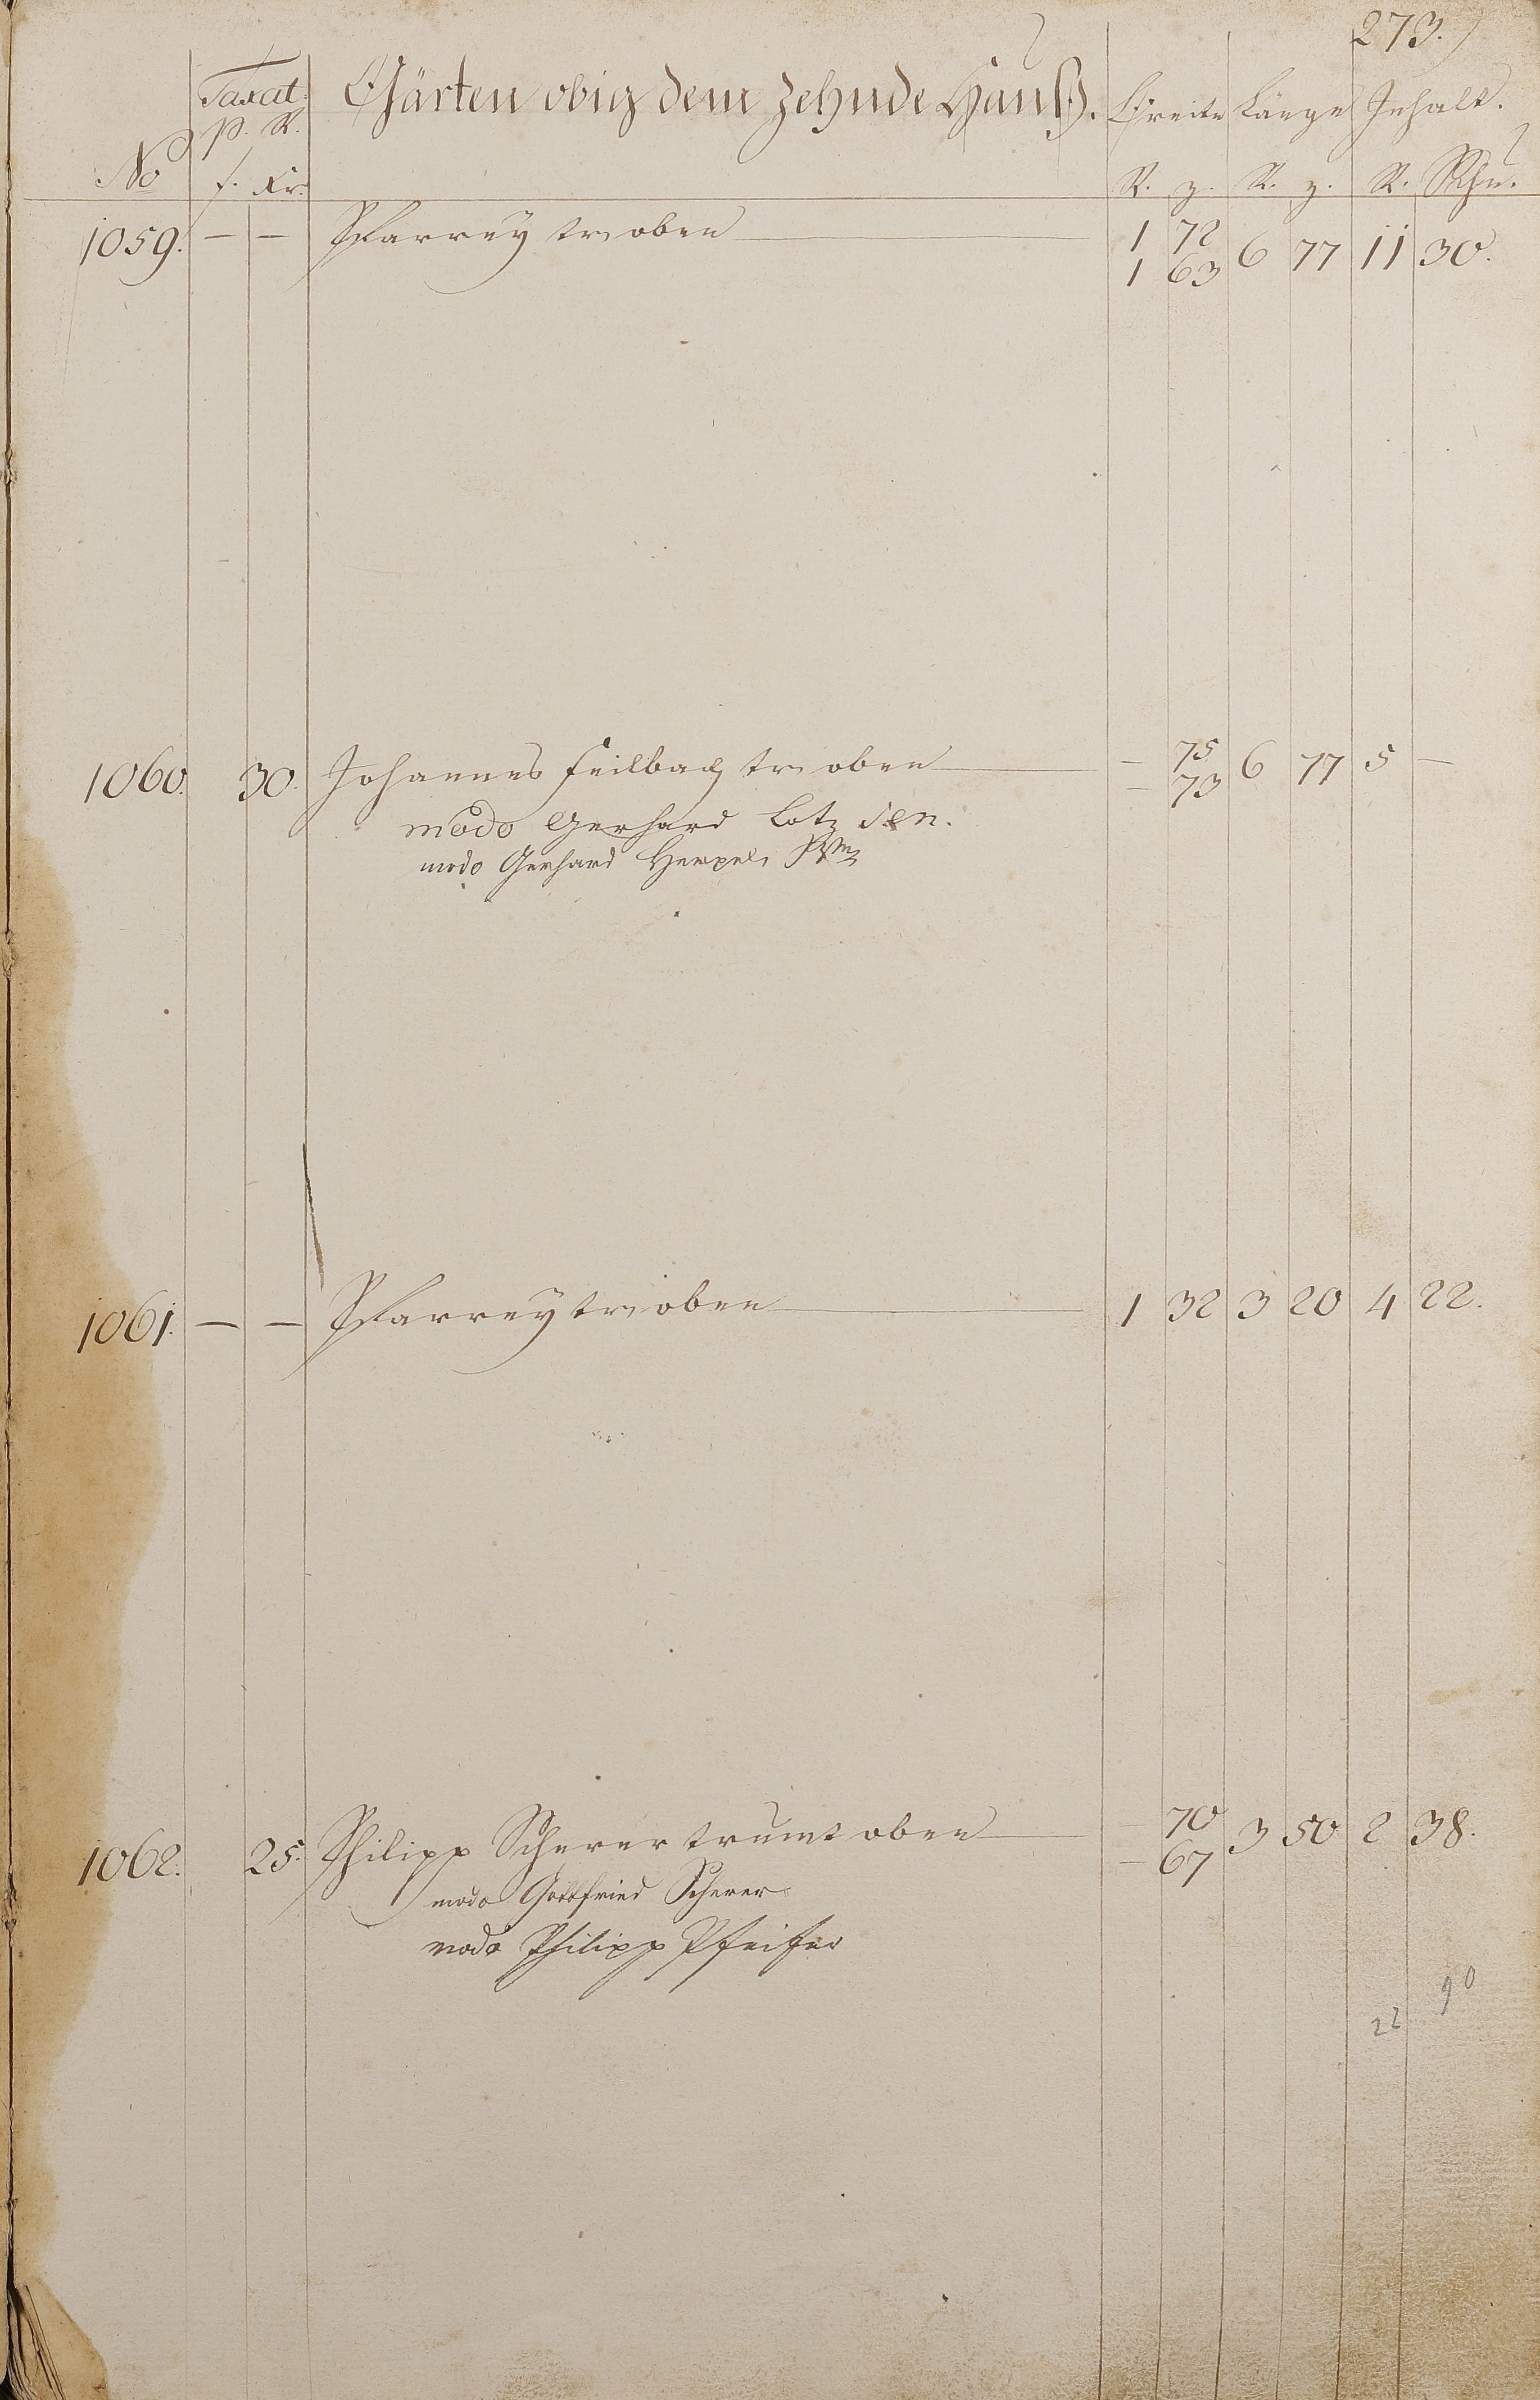 273.
Taxat. Gärten obig dem Zehnde Hauß. Breite Länge Inhalt.
p. R.
No f. Kr. R. z. R. z. R. Schu.
1059. — — Pfarrey tr oben 1 72 6 77 11 30.
1 63
1060. 30. Johannes Feilbach tr oben — 75 6 77 5 —
— 73
modo Gerhard Lotz sen.
modo Gerhard Hempel
1061. — — Pfarrey tr oben 1 32 3 20 4 22.
1062. 25. Philipp Scherer trumt oben — 70 3 50 2 38.
— 67
modo Gottfried Scherer
modo Philipp Pfeifer
22 90